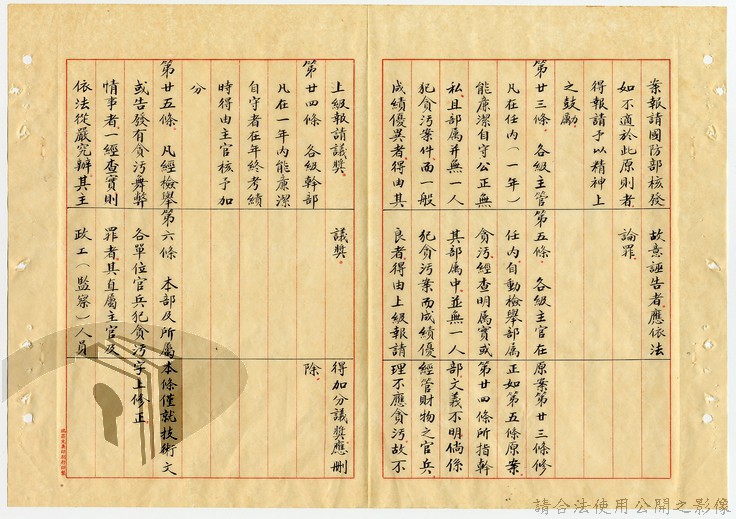 案報請國防部核發
如不適於此原則者
得報請予以精神上
之鼓勵。
第廿三條　各級主管
凡在任內（一年）
能廉潔自守公正無
私且部屬并無一人
犯貪污案件而一般
成績優異者得由其
上級報請議獎。
第廿四條　各級幹部
凡在一年內能廉潔
自守者在年終考績
時得由主官核予加
分
第廿五條　凡經檢舉
或告發有貪污舞弊
情事者一經查實則
依法從嚴究辦其主
故意誣告者應依法
論罪。
第五條　各級主官在
任內自動檢舉部屬
貪污經查明屬實或
其部屬中並無一人
犯貪污案而成績優
良者得由上級報請
議獎。
第六條　本部及所屬
各單位官兵犯貪污
罪者其直屬主官及
政工（監察）人員
原案第廿三條修
正如第五條原案
第廿四條所指幹
部文義不明倘係
經管財物之官兵
理不應貪污故不
得加分議獎應刪
除。
本條僅就技術文
字上修正。
請合法使用公開之影像